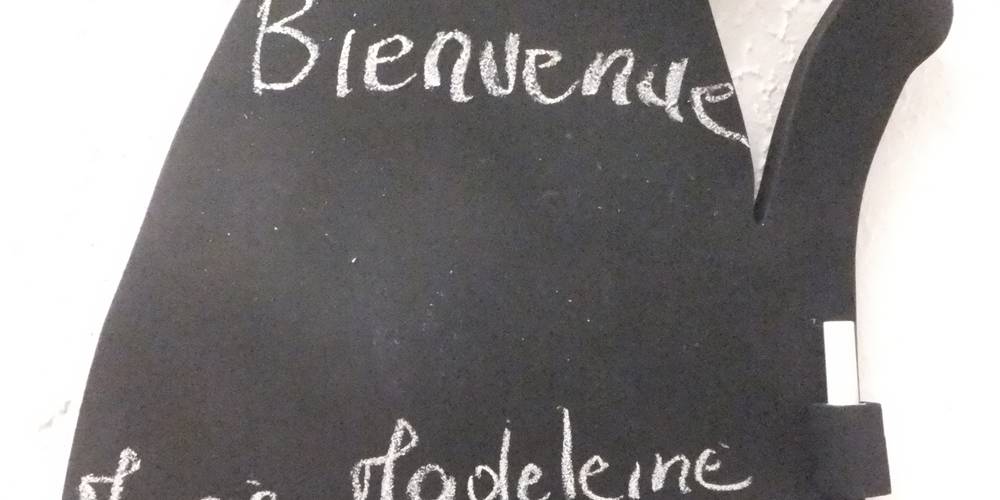 Bienvenue
Madeleine